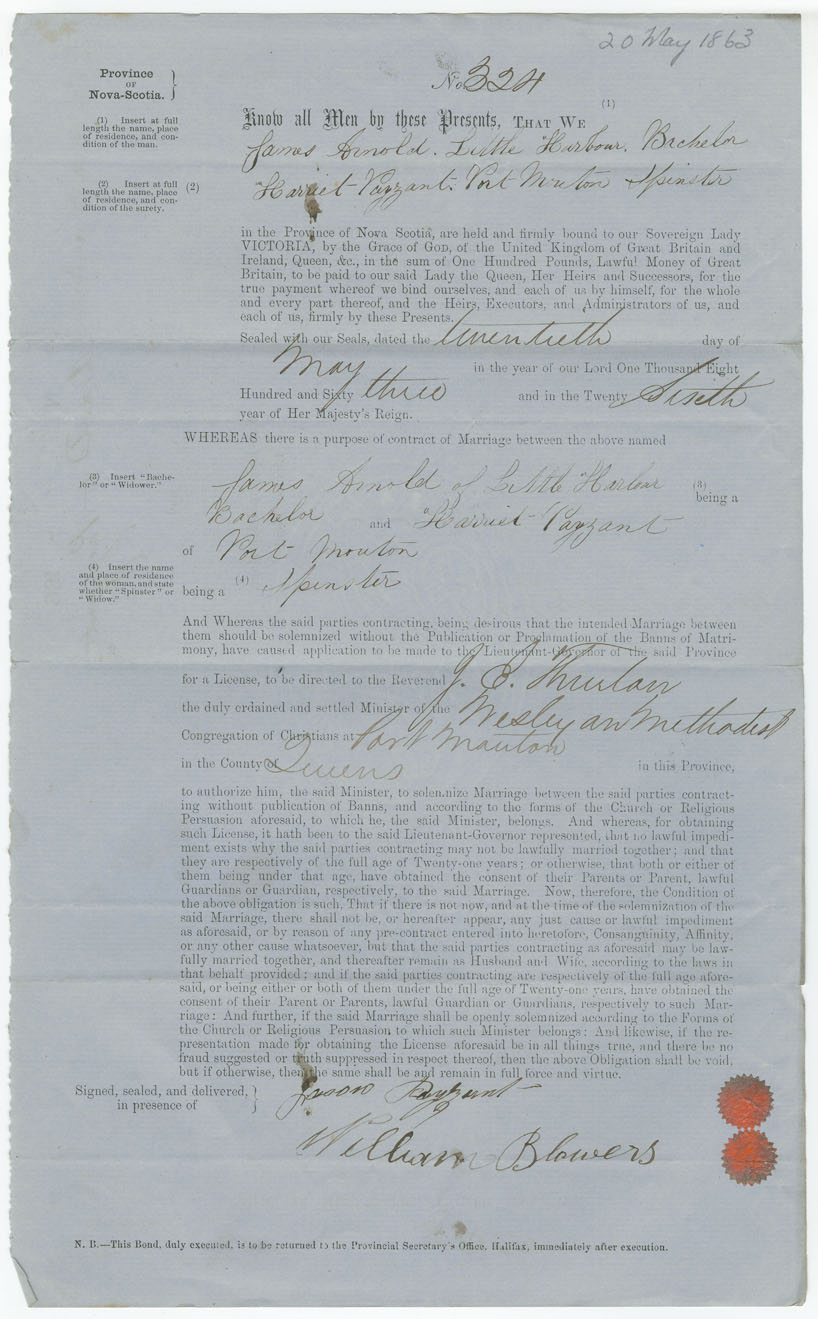 20 May 1863
Province
OF
Nova-Scotia.
No. 324
(1) Insert at full
length the name, place
of residence, and con-
dition of the man.
Know all Men by these Presents, THAT WE (1)
James Arnold. Little Harbour. Bachelor
(2) Insert at full
length the name, place
of residence, and con-
dition of the surety.
(2) Harriet Payzant. Port Mouton Spinster
in the Province of Nova Scotia, are held and firmly bound to our Sovereign Lady
VICTORIA, by the Grace of GOD, of the United Kingdom of Great Britain and
Ireland, Queen, &c., in the sum of One Hundred Pounds, Lawful Money of Great
Britain, to be paid to our said Lady the Queen, Her Heirs and Successors, for the
true payment whereof we bind ourselves, and each of us by himself, for the whole
and every part thereof, and the Heirs, Executors, and Administrators of us, and
each of us, firmly by these Presents.
Sealed with our Seals, dated the twentieth day of
May in the year of our Lord One Thousand Eight
Hundred and Sixty three and in the Twenty Sixth
year of Her Majesty's Reign.
WHEREAS there is a purpose of contract of Marriage between the above named
(3) Insert "Bache-
lor" or "Widower."
James Arnold of Little Harbor (3)
being a
Bachelor and Harriet Payzant
of Port Mouton
(4) Insert the name
and place of residence
of the woman, and state
whether "Spinster" or
"Widow."
being a (4) Spinster
And Whereas the said parties contracting, being desirous that the intended Marriage between
them should be solemnized without the Publication or Proclamation of the Banns of Matri-
mony, have caused application to be made to the Lieutenant-Governor of the said Province
for a License, to be directed to the Reverend J. S.
the duly ordained and settled Minister of the Wesleyan Methodist
Congregation of Christians at Port Mouton
in the County of Queens in this Province,
to authorize him, the said Minister, to solemnize Marriage between the said parties contract-
ing without publication of Banns, and according to the forms of the Church or Religious
Persuasion aforesaid, to which he, the said Minister, belongs. And whereas, for obtaining
such License, it hath been to the said Lieutenant-Governor represented, that no lawful impedi-
ment exists why the said parties contracting may not be lawfully married together; and that
they are respectively of the full age of Twenty-one years; or otherwise, that both or either of
them being under that age, have obtained the consent of their Parents or Parent, lawful
Guardians or Guardian, respectively, to the said Marriage. Now, therefore, the Condition of
the above obligation is such, That if there is not now, and at the time of the solemnization of the
said Marriage, there shall not be, or hereafter appear, any just cause or lawful impediment
as aforesaid, or by reason of any pre-contract entered into heretofore, Consanguinity, Affinity,
or any other cause whatsoever, but that the said parties contracting as aforesaid may be law-
fully married together, and thereafter remain as Husband and Wife, according to the laws in
that behalf provided; and if the said parties contracting are respectively of the full age afore-
said, or being either or both of them under the full age of Twenty-one years, have obtained the
consent of their Parent or Parents, lawful Guardian or Guardians, respectively to such Mar-
riage: And further, if the said Marriage shall be openly solemnized according to the Forms of
the Church or Religious Persuasion to which such Minister belongs: And likewise, if the re-
presentation made for obtaining the License aforesaid be in all things true, and there be no
fraud suggested or truth suppressed in respect thereof, then the above Obligation shall be void,
but if otherwise, then the same shall be and remain in full force and virtue.
Signed, sealed, and delivered,
in presence of
Jason Payzant
William Blowers
N. B.—This Bond, duly executed, is to be returned to the Provincial Secretary's Office, Halifax, immediately after execution.